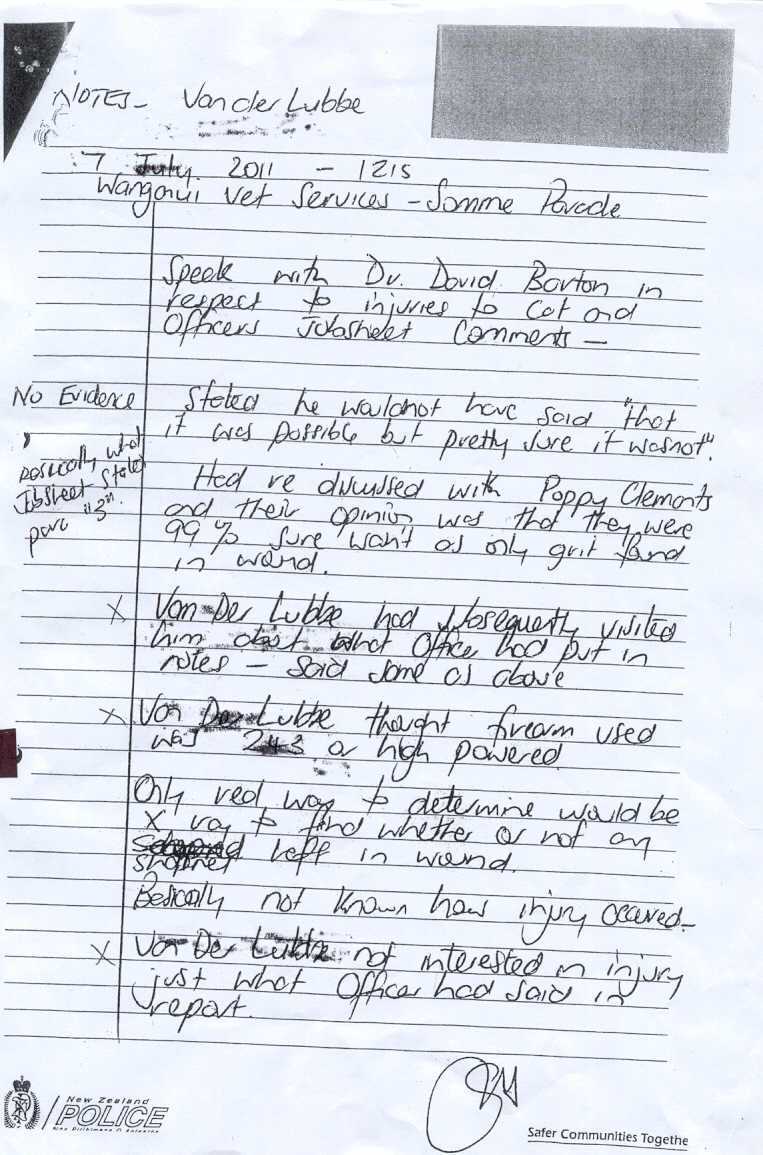 NOTES - Van der Lubbe
7 July 2011 - 1215
Wanganui Vet Services - Somme Parade
Speek with Dr. David Barton in
respect to injuries to Cat and
Officers Jobsheet Comments -
No Evidence
Stated he wouldnot have said "that
it was possible but pretty sure it wasnot".
Basically what
Jobsheet States
para "3".
Had re discussed with Poppy Clements
and their opinion was that they were
99% sure wan't as only grit found
in wound.
X Van Der Lubbe had subsequently visited
him about what Officer had put in
notes - said same as above
X Van Der Lubbe thought firearm used
was 243 or high powered
Only real way to determine would be
X ray to find whether or not any
shrapnel left in wound.
Basically not known how injury occured-
X Van Der Lubbe not interested in injury
just what Officer had said in
report.
New Zealand
POLICE
Safer Communities Togethe